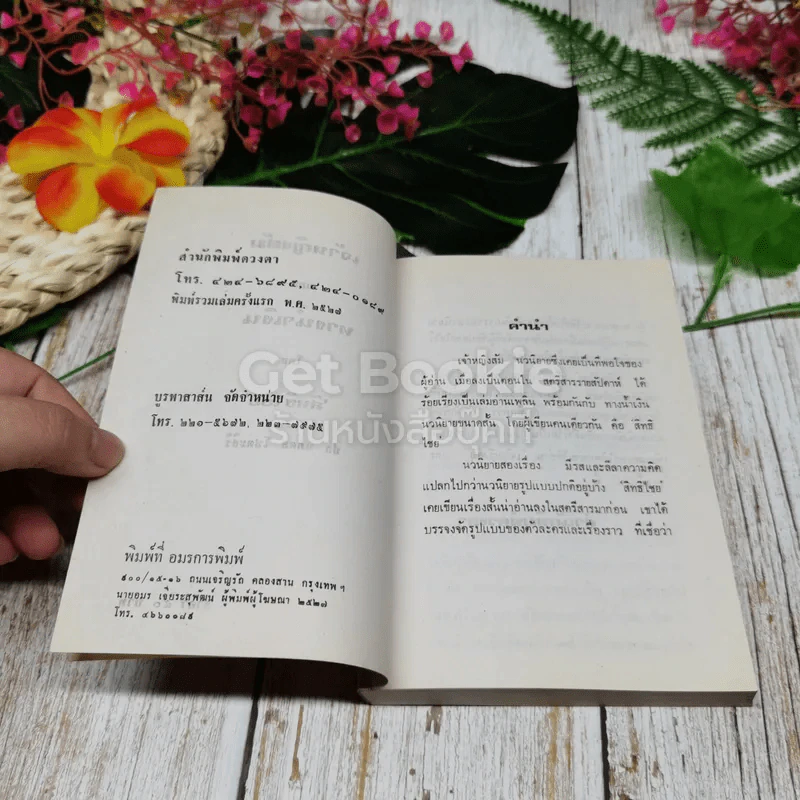 สำนักพิมพ์ดวงตา
โทร. ๔๒๔-๖๘๙๕, ๔๒๔-๐๑๘๙
พิมพ์รวมเล่มครั้งแรก พ.ศ. ๒๕๒๗
บูรพาสาส์น จัดจำหน่าย
โทร. ๒๒๐-๕๖๗๒, ๒๒๓-๗๙๗๕
พิมพ์ที่ อมรการพิมพ์
๕๐๐/๑๕-๑๖ ถนนเจริญรัถ คลองสาน กรุงเทพฯ
นายอมร เจียระสุพัฒน์ ผู้พิมพ์ผู้โฆษณา ๒๕๒๗
โทร. ๔๖๖๐๐๘๕
คำนำ
เจ้าหญิงส้ม นวนิยายซึ่งเคยเป็นที่พอใจของ
ผู้อ่าน เมื่อลงเป็นตอนใน สตรีสารรายสัปดาห์ ได้
ร้อยเรียงเป็นเล่มอ่านเพลิน พร้อมกันกับ ทางน้ำเงิน
นวนิยายขนาดสั้น โดยผู้เขียนคนเดียวกัน คือ 'สิทธิ
ไชย'
นวนิยายสองเรื่อง มีรสและลีลาความคิด
แปลกไปกว่านวนิยายรูปแบบปกติอยู่บ้าง 'สิทธิไชย'
เคยเขียนเรื่องสั้นน่าอ่านลงในสตรีสารมาก่อน เขาได้
บรรจงจัดรูปแบบของตัวละครและเรื่องราว ที่เชื่อว่า
Get Bookie
ร้านหนังสือบุ๊คกี้